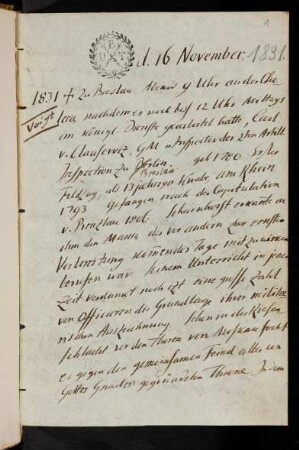 1
d. 16 November. 1831.
1831 + Zu Breslau Abends 9 Uhr an der Cho
Voigt lera nachdem er noch bis 12 Uhr Mittags
im königl Dienste gearbeitet hatte, Carl
v. Clausewiz, GM u Inspecteur der 2ten Artill.
Inspection zu Breslau geb 1780
Feldzug als 13 jähriger Knabe am Rhein
1793 gefangen nach der Capitulation
v. Prenzlau 1806 Scharnhorst erkannte in
ihm den Mann der vor andern zur ernsten
Vorbereitung kommender Tage mit zu wirken
berufen war. Seinem Unterricht in jener
Zeit verdankt noch izt eine große Zahl
von Officieren die Grundlage ihrer militä
rischen Auszeichnung Schon in der Riesen
schlacht vor den Thoren von Moskau focht
er gegen den gemeinsamen Feind aller von
Gottes Gnaden gegründeten Throne